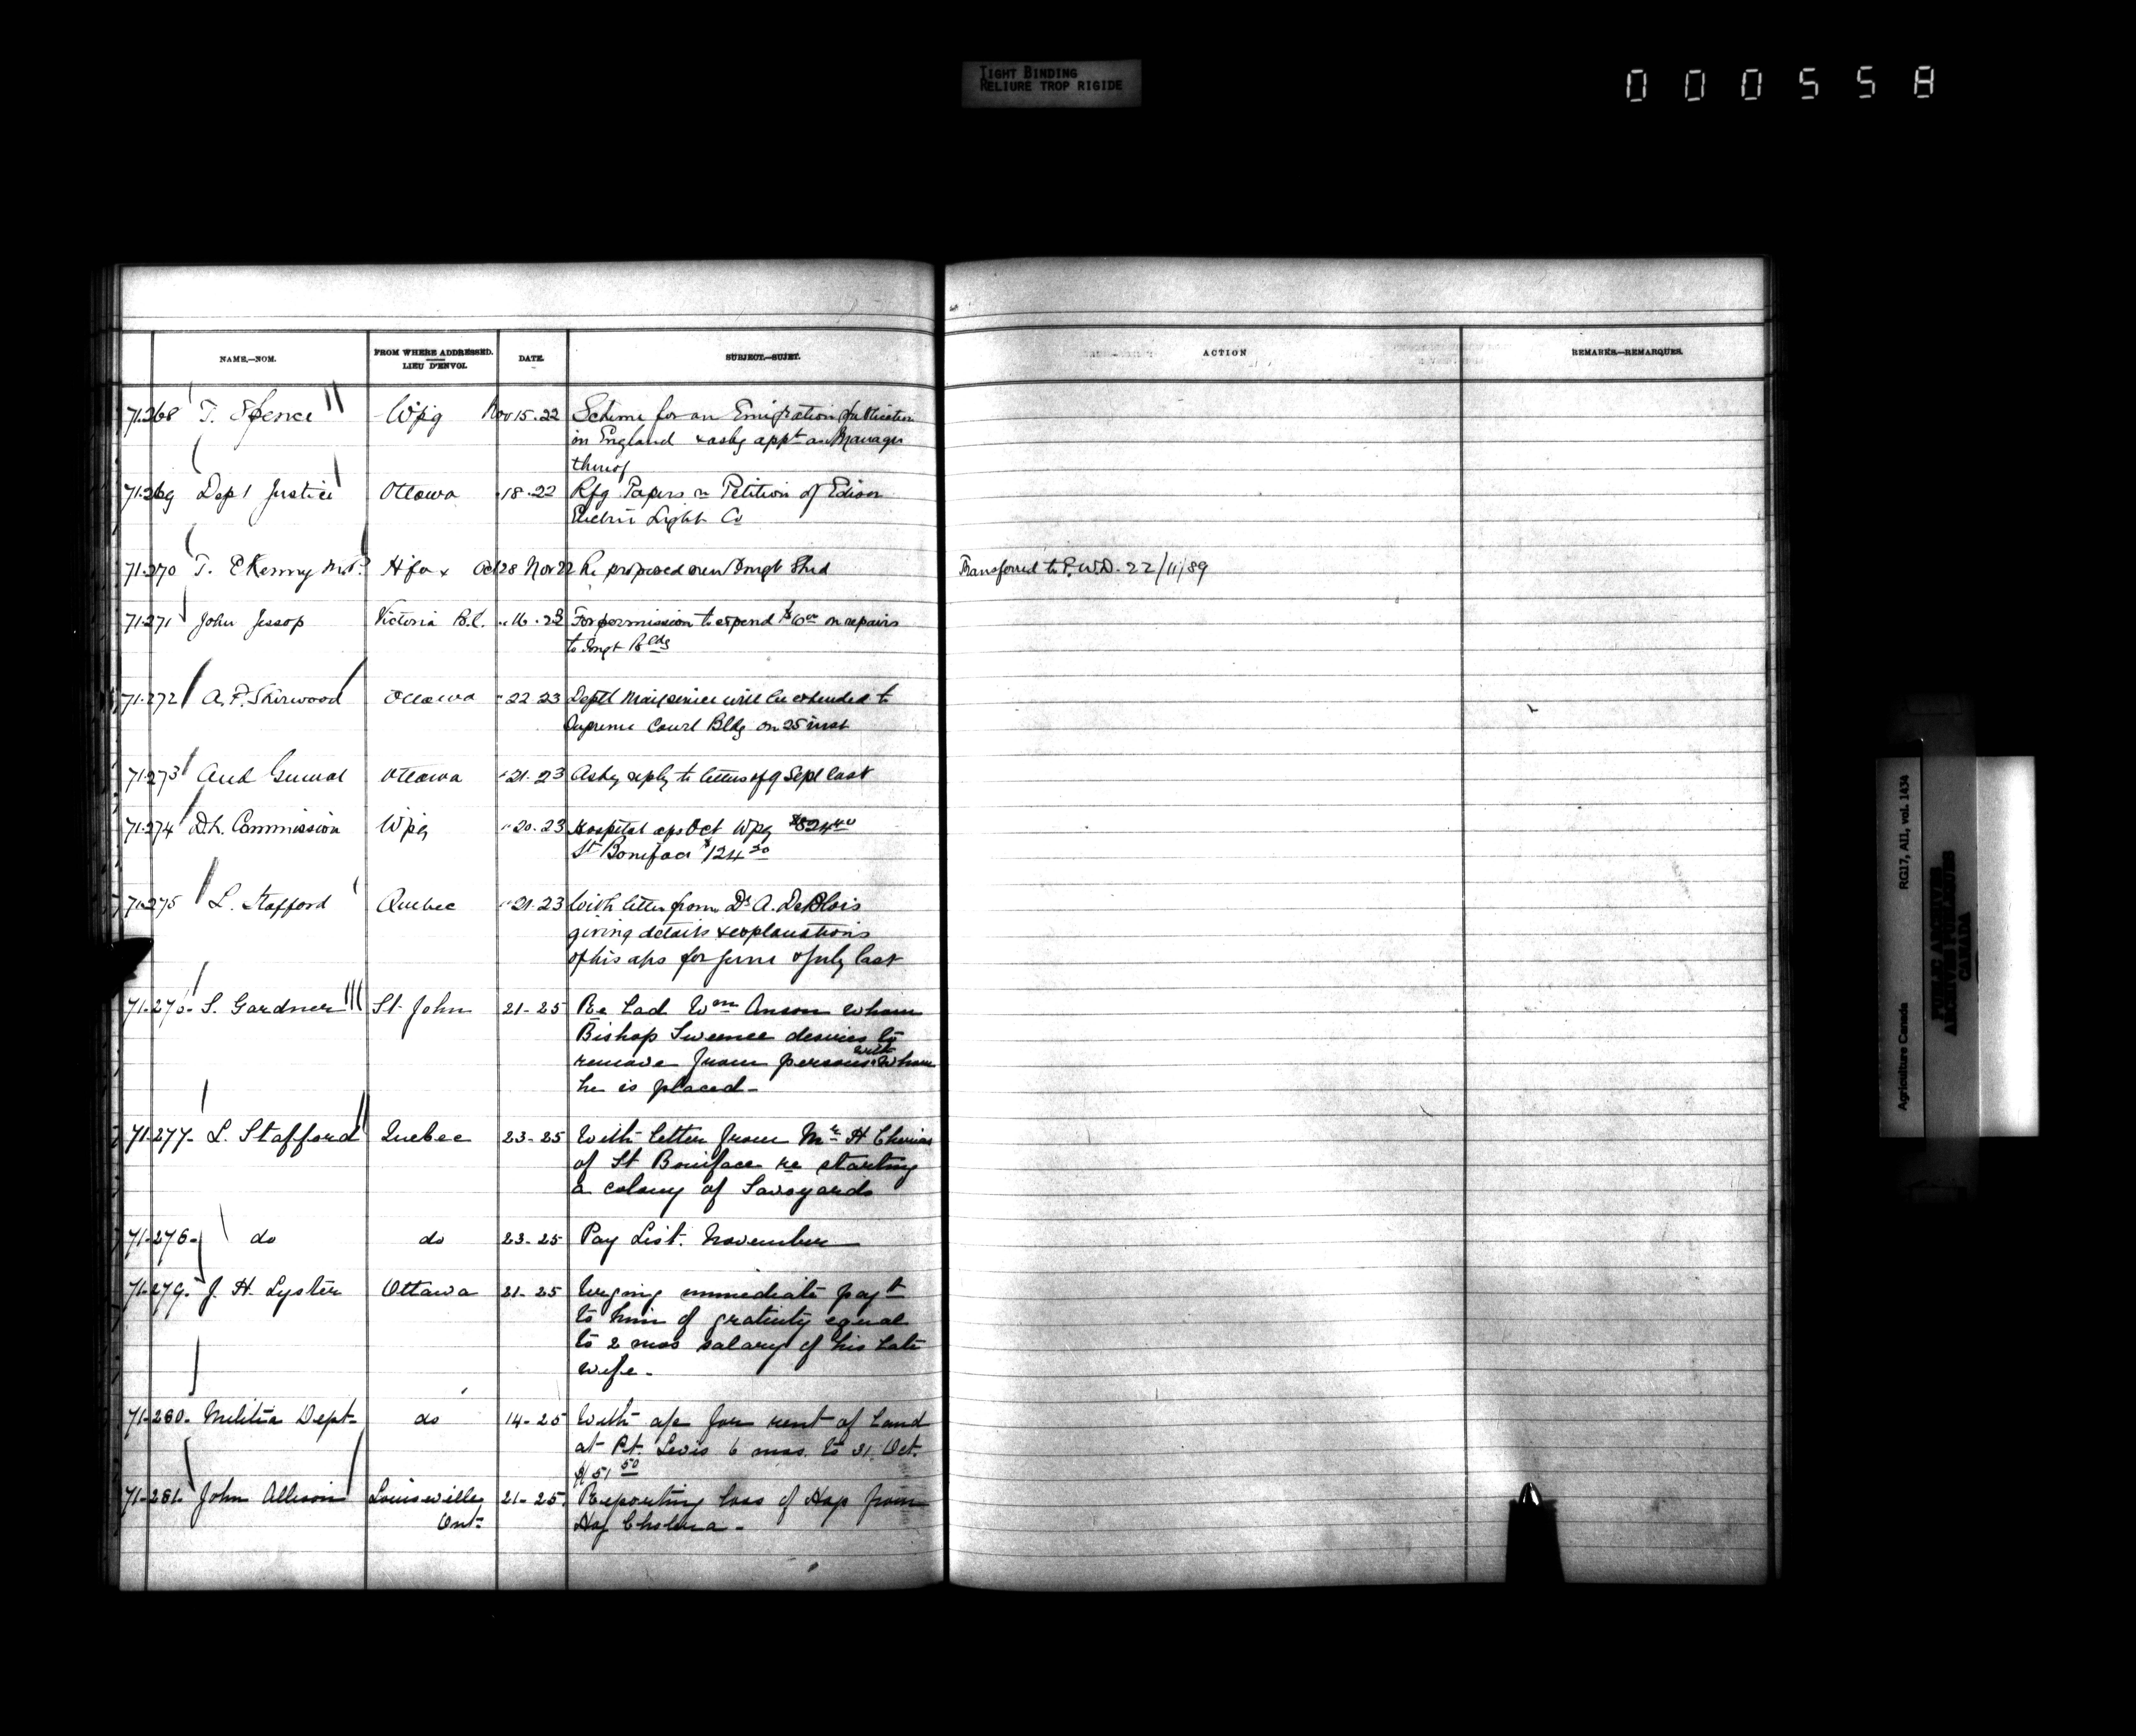 TIGHT BINDING
RELIURE TROP RIGIDE
000558
NAME.—NOM.
FROM WHERE ADDRESSED.
LIEU D'ENVOI.
DATE.
SUBJECT.—SUJET.
ACTION
REMARKS.—REMARQUES.
71.268 T. Spence Wpg Nov 15.22 Scheme for an Emigration publication
in England & askg appt as Manager
thereof
71.269 Dept Justice Ottawa " 18.22 Rfg Papers re Petition of Edison
Electric Light Co
71.270 T. E Kenny M.P. Hfax Oct 28 Nov 22 Re proposed new Immgt Shed Transferred to P.W.D. 22/11/89
71.271 John Jessop Victoria B.C. " 16.23 For permission to expend $6.00 on repairs
to Imgt Bldg
71.272 A.P. Sherwood Ottawa " 22 23 Deptl Mail service will be extended to
Supreme Court Bldg on 25 inst
71.273 Aud General Ottawa " 21.23 Askg reply to letters of 9 Sept last
71.274 D.L. Commission Wpg " 20.23 Hospital aps Oct Wpg
St Boniface $124
71.275 L. Stafford Quebec " 21.23 With letter from Dr A. DeBlois
giving details & explanations
of his aps for June & July last
71.276. S. Gardner St. John 21-25 Re Lad Wm Anson whom
Bishop Sweenee desires to
remove from persons with whom
he is placed-
71.277- L. Stafford Quebec 23-25 With letter from Mr H
of St Boniface re starting
a colony of Savoyards
71.278- do do 23-25 Pay List. November
71.279. J. H. Lyster Ottawa 21-25 Urging immediate payt
to him of gratuity equal
to 2 mos salary of his late
wife-
71.280. Militia Dept- do 14-25 With a/c for rent of Land
at Pt. Levis 6 mos. to 31. Oct.
$151 50
71-281. John Allison Louisville, 21-25. Reporting loss of Hogs from
Ont- Hog Cholera-
Agriculture Canada RG17, AI1, vol. 1434
PUBLIC ARCHIVES
ARCHIVES PUBLIQUES
CANADA